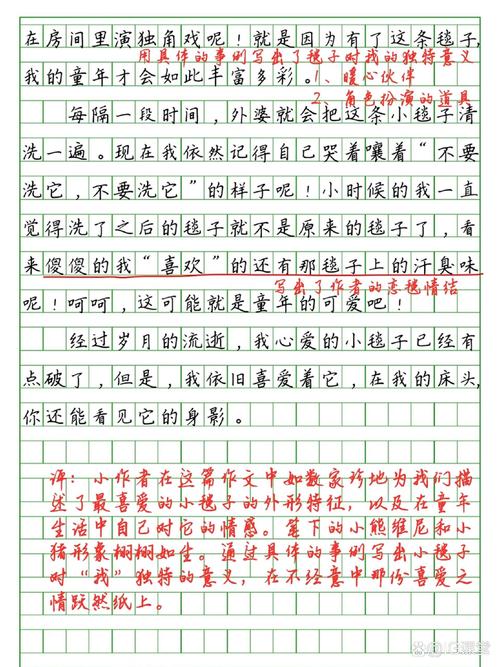 在房间里演独角戏呢！就是因为有了这条毯子，
用具体的事例写出了毯子对我的独特意义
我的童年才会如此丰富多彩。
1、暖心伙伴
2、角色扮演的道具
每隔一段时间，外婆就会把这条小毯子清
洗一遍。现在我依然记得自己哭着嚷着“不要
洗它，不要洗它”的样子呢！小时候的我一直
觉得洗了之后的毯子就不是原来的毯子了，看
来傻傻的我“喜欢”的还有那毯子上的汗臭味
写出了作者的恋毯情结
呢！呵呵，这可能就是童年的可爱吧！
经过岁月的流逝，我心爱的小毯子已经有
点破了，但是，我依旧喜爱着它，在我的床头，
你还能看见它的身影。
评：小作者在这篇作文中如数家珍地为我们描
述了最喜爱的小毯子的外形特征，以及在童年
生活中自己对它的情感。笔下的小熊维尼和小
猪形象栩栩如生。通过具体的事例写出小毯子
对“我”独特的意义，在不经意中那份喜爱之
情跃然纸上。